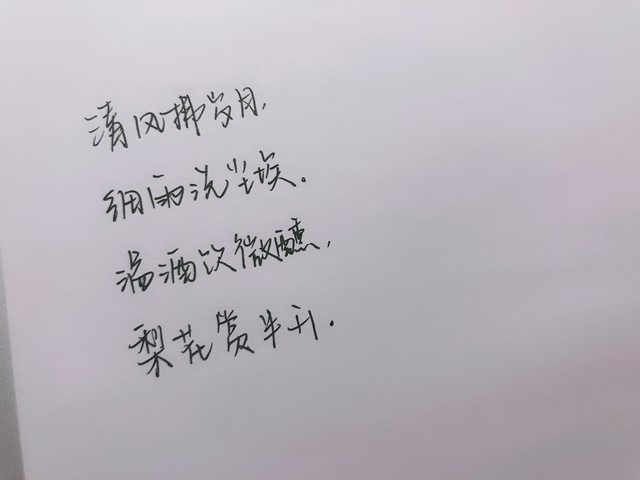 清风拂岁月,
细雨洗尘埃.
温酒饮微醺,
梨花赏半开.